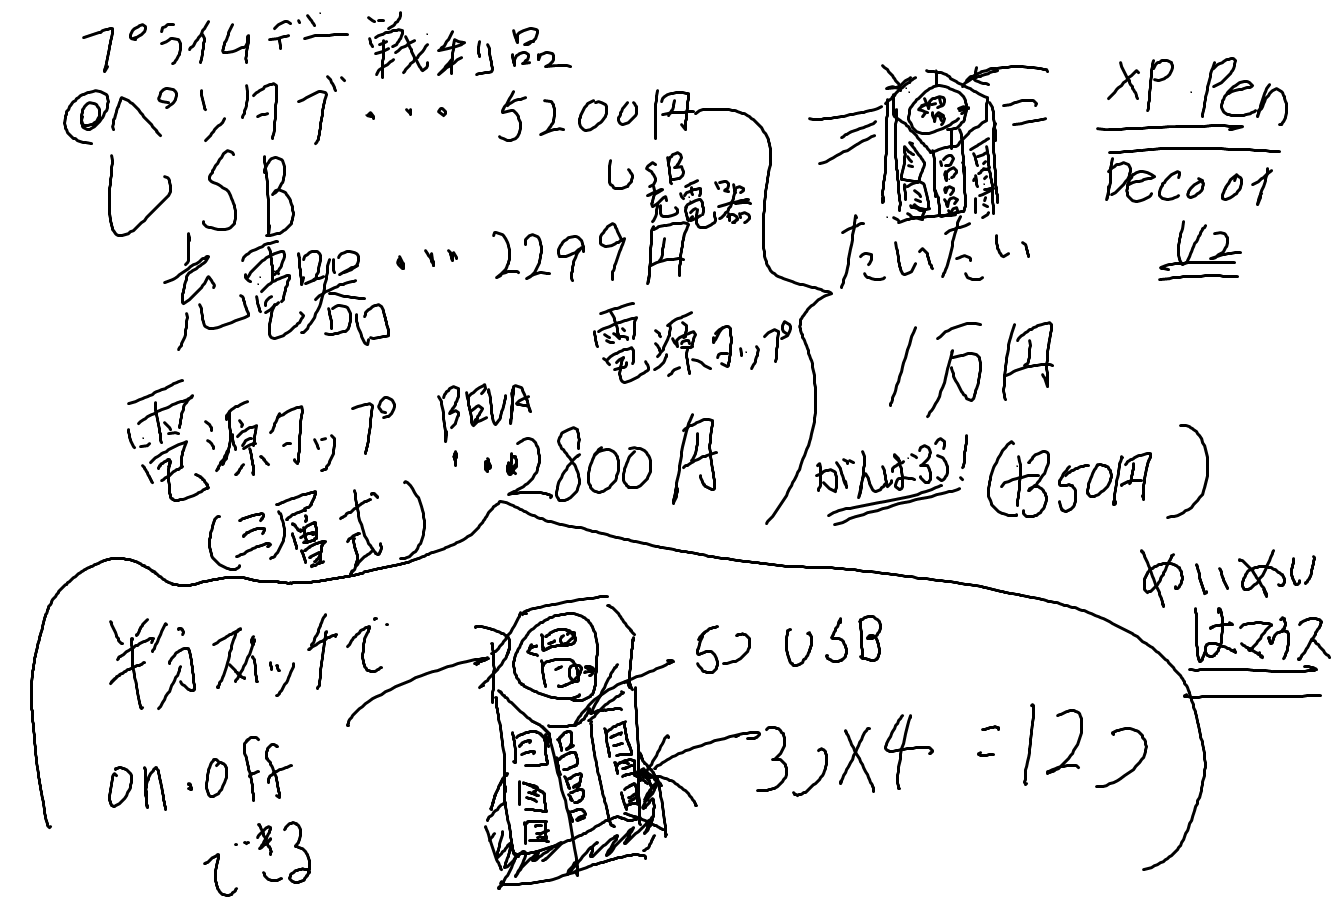 プライムデー戦利品
@ペンタブ・・・5200円
USB
充電器・・・2299円
USB
充電器
電源タップ
電源タップ BEVA
・・・2800円
(三層式)
XP Pen
Deco 01
V2
だいたい
1万円
がんばろう!(+350円)
めいめい
はマウス
半分スイッチで
on.off
できる
5つ USB
3つ×4=12つ